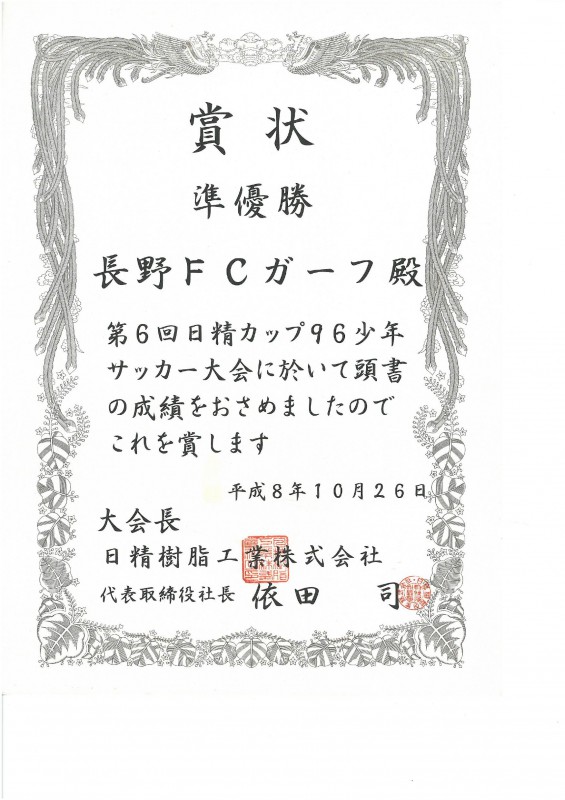 賞状
準優勝
長野FCガーフ殿
第6回日精カップ96少年
サッカー大会に於いて頭書
の成績をおさめましたので
これを賞します
平成8年10月26日
大会長
日精樹脂工業株式会社
代表取締役社長 依田 司